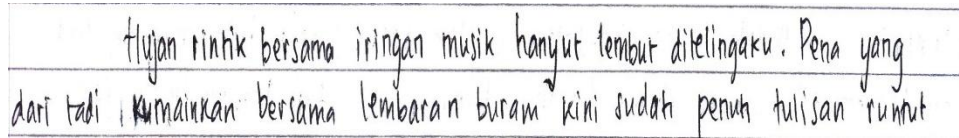 Hujan rintik bersama iringan musik hanyut lembut ditelingaku. Pena yang
dari tadi kumainkan bersama lembaran buram kini sudah penuh tulisan runtut